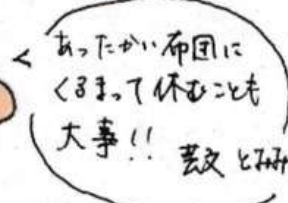 あったかい布団に
くるまって休むことも
大事!!
芸文 とみみ